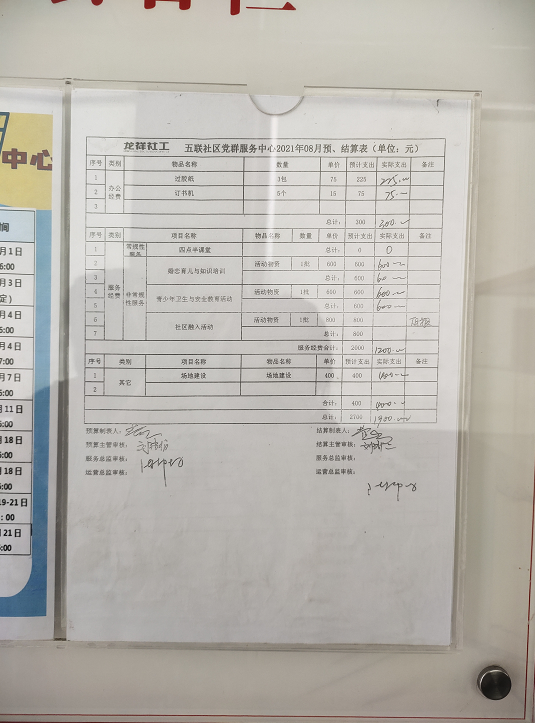 中心
间
月1日
月3日
定）
月4日
月4日
月7日
月11日
月18日
月18日
19-21日
月21日
龙祥社工 五联社区党群服务中心2021年08月预、结算表（单位：元）
序号 类别 物品名称 数量 单价 预计支出 实际支出 备注
1 办公经费 过胶纸 3包 75 225 225.-
2 订书机 5个 15 75 75.-
3
总计： 300 300.-
序号 类别 项目名称 物品名称 数量 单价 预计支出 实际支出 备注
1 服务经费 常规性服务 四点半课堂 总计： 0 0
2 非常规性服务 婚恋育儿与知识培训 活动物资 1批 600 600 600.-
3 总计： 600 600.-
4 青少年卫生与安全教育活动 活动物资 1批 600 600 600.-
5 总计： 600 600.-
6 社区融入活动 活动物资 1批 800 800
7 总计： 800
服务经费合计： 2000 1200.-
序号 类别 项目名称 物品名称 单价 预计支出 实际支出 备注
1 其它 场地建设 场地建设 400 400 400.-
2
合计： 400 400.-
总计： 2700 1900.-
预算制表人： 结算制表人：
预算主管审核： 结算主管审核：
服务总监审核： 服务总监审核：
运营总监审核： 运营总监审核：